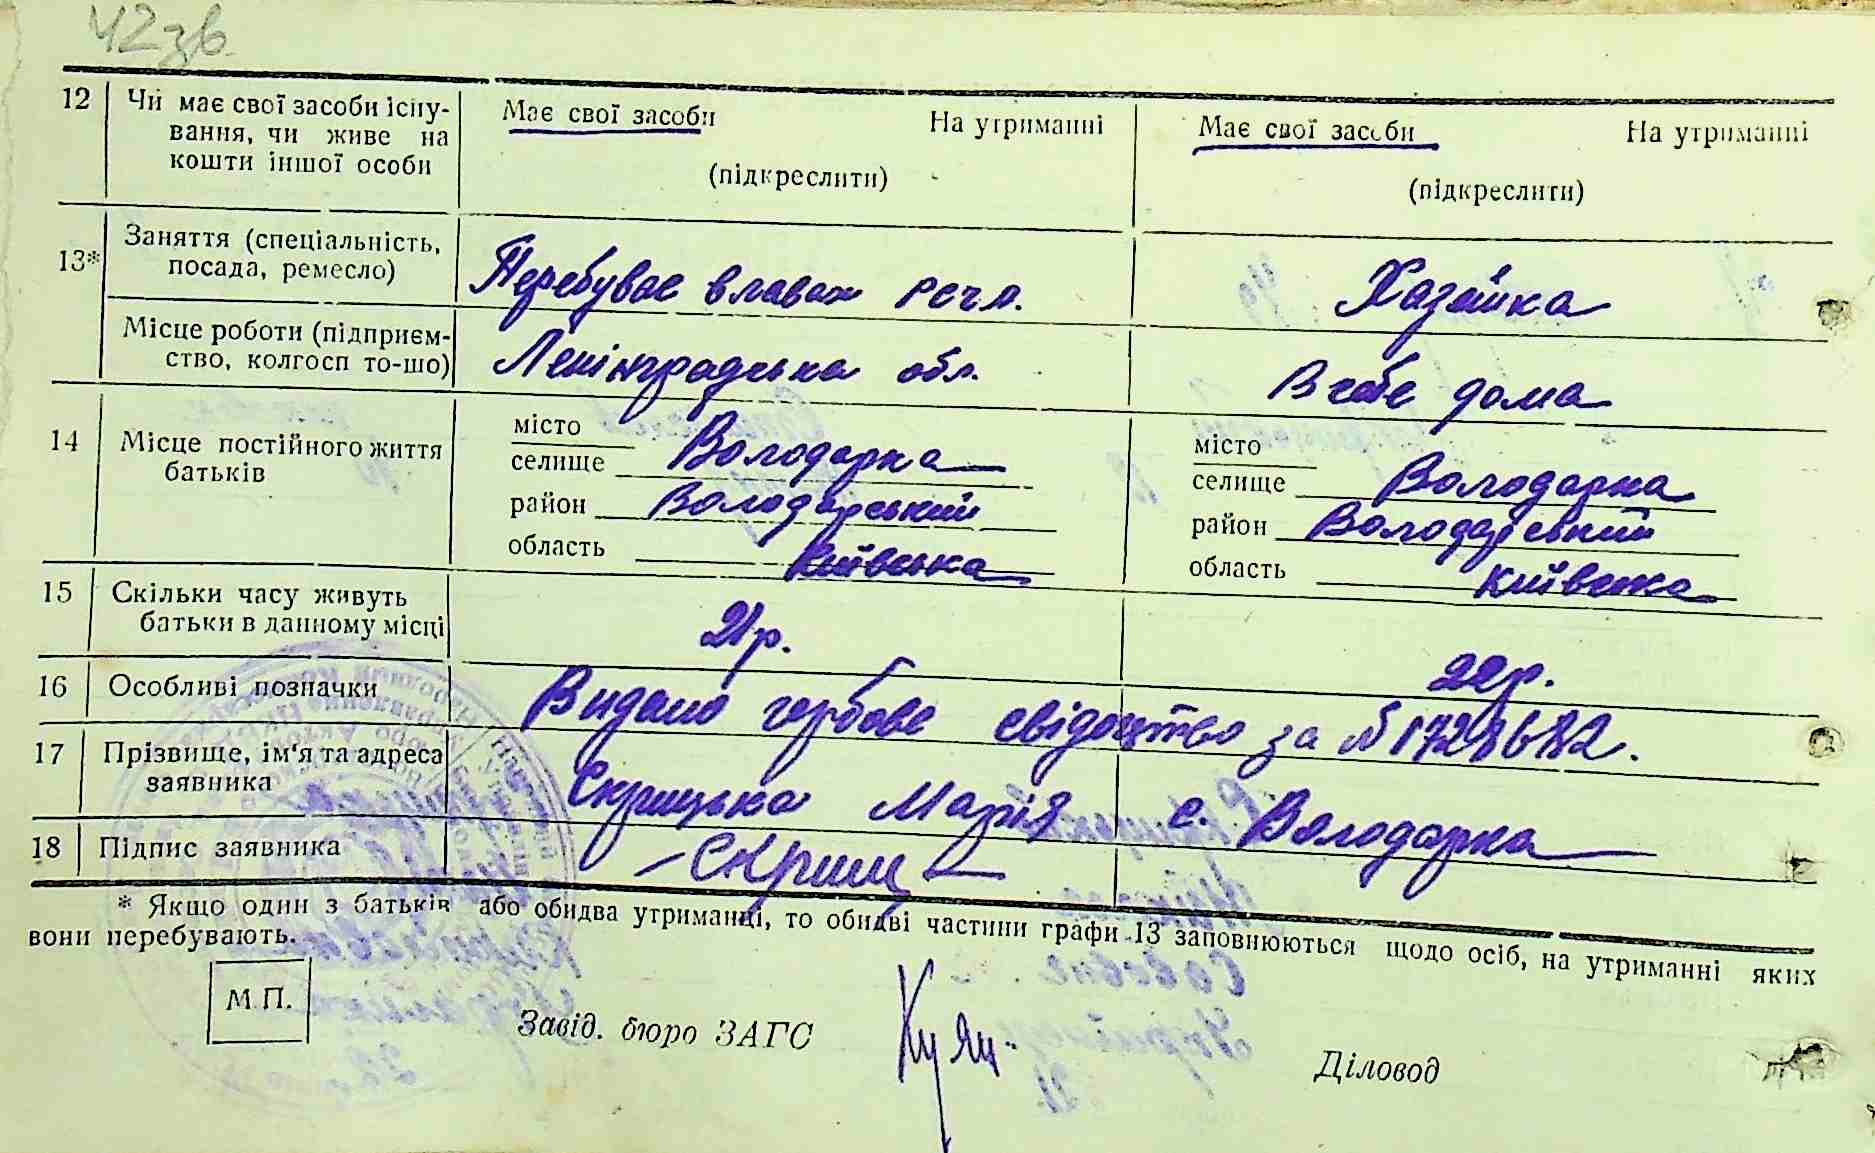 42зв.
12 Чи має свої засоби існу-
вання, чи живе на
кошти іншої особи
Має свої засоби На утриманні
(підкреслити)
Має свої засоби На утриманні
(підкреслити)
13* Заняття (спеціальність,
посада, ремесло)
Перебуває в лавах РСЧА.
Хазяйка
Місце роботи (підприєм-
ство, колгосп то-що)
Ленінградська обл.
В себе дома
14 Місце постійного життя
батьків
місто
селище Володарка
район Володарський
область Київська
місто
селище Володарка
район Володарський
область Київська
15 Скільки часу живуть
батьки в данному місці
21р.
22р.
16 Особливі позначки
Видано гербове свідоцтво за №
17 Прізвище, ім'я та адреса
заявника
Скрицька Марія с. Володарка
18 Підпис заявника
-Скриц-
* Якщо один з батьків або обидва утриманці, то обидві частини графи 13 заповнюються щодо осіб, на утриманні яких
вони перебувають.
М.П.
Завід. бюро ЗАГС
Діловод